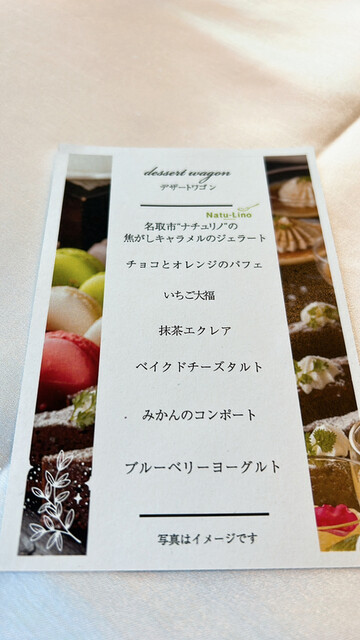 dessert wagon
デザートワゴン
Natu-Lino
名取市"ナチュリノ"の
焦がしキャラメルのジェラート
チョコとオレンジのパフェ
いちご大福
抹茶エクレア
ベイクドチーズタルト
みかんのコンポート
ブルーベリーヨーグルト
写真はイメージです